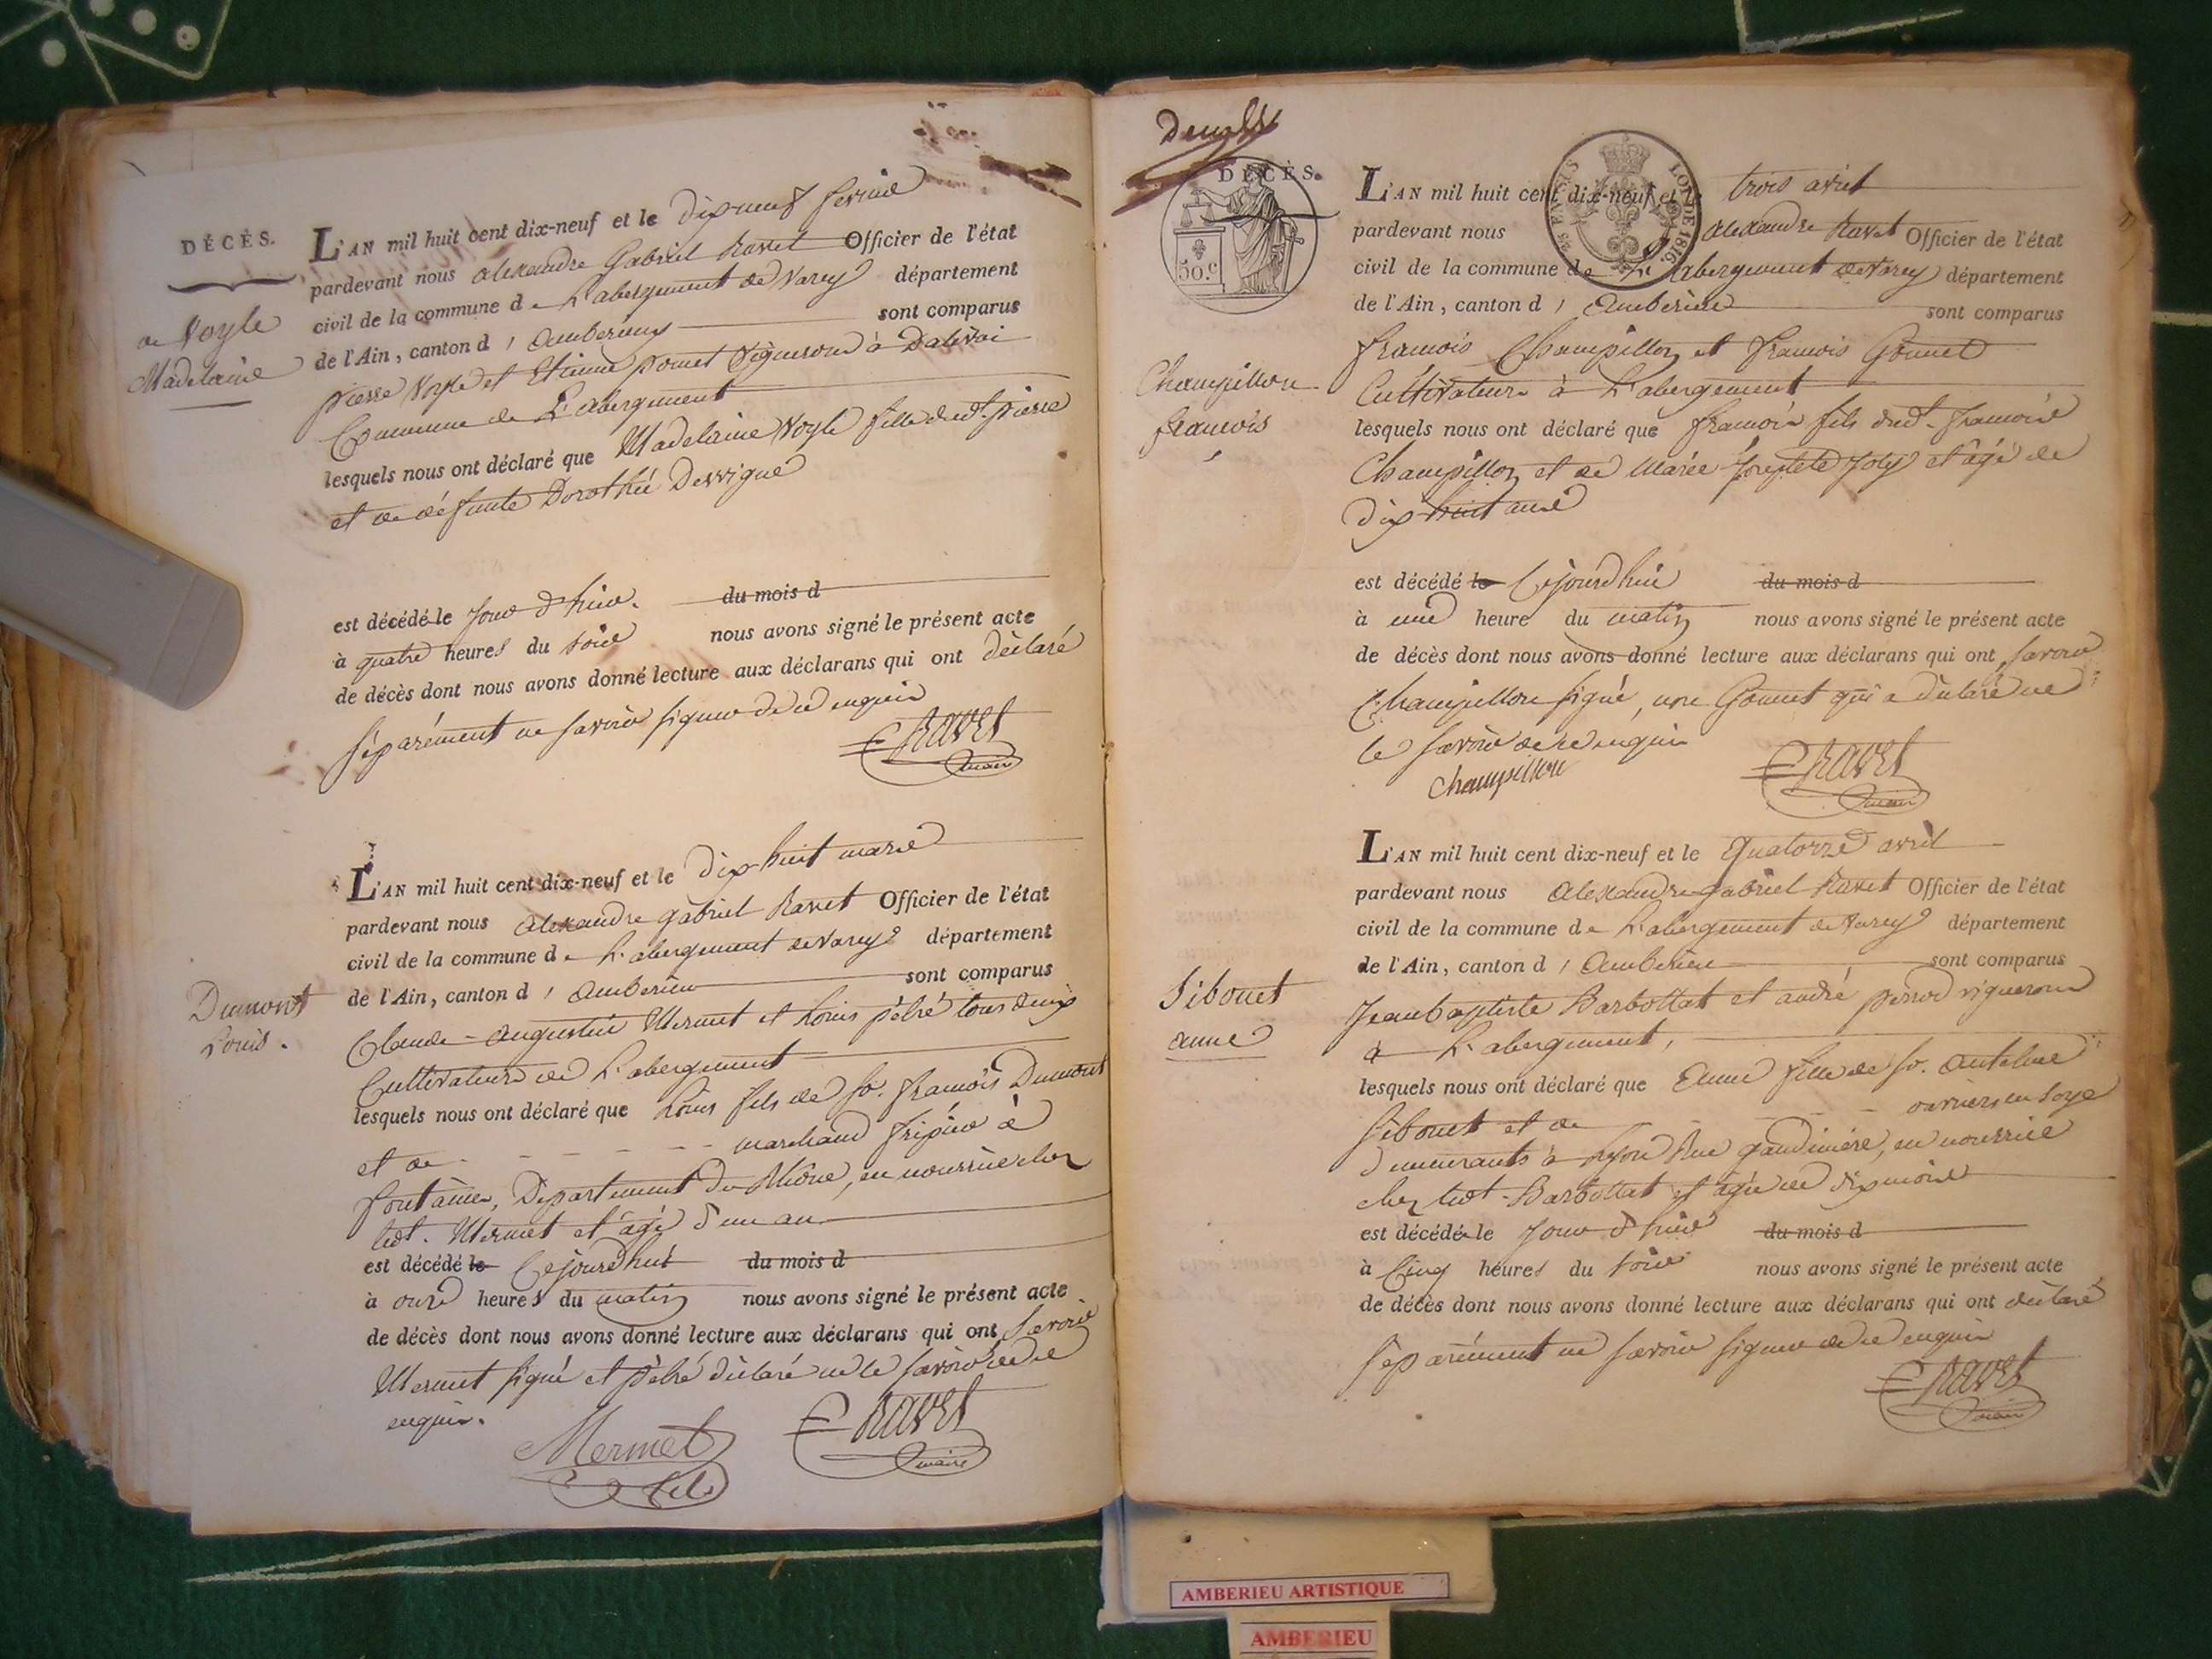 DÉCÈS.
de Noyle
Madelaine
L'AN mil huit cent dix-neuf et le dix-neuf fevrier
pardevant nous alexandre Gabriel Ravet Officier de l'état
civil de la commune de L'abergement de Varey département
de l'Ain, canton d' amberieux sont comparus
pierre Noyle et Etienne pomet vignerons à Dalivoi
Commune de L'abergement
lesquels nous ont déclaré que Madelaine Noyle fille dud.t pierre
et de défunte Dorothée Dervigne
est décédé le jour d'hier. du mois d
à quatre heures du soir nous avons signé le présent acte
de décès dont nous avons donné lecture aux déclarans qui ont déclaré
séparément ne savoir signer de ce enquis
Ravet
maire
Dumont
Louis.
L'AN mil huit cent dix-neuf et le dix-huit mars
pardevant nous alexandre gabriel Ravet Officier de l'état
civil de la commune de L'abergement de Varey département
de l'Ain, canton d' amberieu sont comparus
Claude-augustin Mermet et Louis pélré tous deux
Cultivateurs de L'abergement
lesquels nous ont déclaré que Louis fils de Sr. françois Dumont
et de - - - - - marchand fripier à
fontaines, Département du Rhône, en nourrice chez
led.t Mermet et agé d'un an
est décédé le Cejourd'hui du mois d
à onze heures du matin nous avons signé le présent acte
de décès dont nous avons donné lecture aux déclarans qui ont, savoir
Mermet signé et pélré déclaré ne le savoir de ce
enquis.
Mermet
fils
Ravet
maire
DÉCÈS.
50.c
LOI DE 1816.
L'AN mil huit cent dix-neuf et le trois avril
pardevant nous alexandre Ravet Officier de l'état
civil de la commune de L'abergement de Varey département
de l'Ain, canton d' amberieu sont comparus
Champillon
françois
françois Champillon et françois Gonnet
Cultivateurs à L'abergement
lesquels nous ont déclaré que françois fils dud.t françois
Champillon et de Marie Josephte Joly et âgé de
dix-huit ans
est décédé le Cejourd'hui du mois d
à une heure du matin nous avons signé le présent acte
de décès dont nous avons donné lecture aux déclarans qui ont, savoir
Champillon signé, non Gonnet qui a déclaré ne
le savoir de ce enquis
Champillon
Ravet
maire
L'AN mil huit cent dix-neuf et le quatorze avril
pardevant nous alexandre gabriel Ravet Officier de l'état
civil de la commune de L'abergement de Varey département
de l'Ain, canton d' amberieu sont comparus
Sibouet
anne
Jean baptiste Barbottat et andré perrod vignerons
à L'abergement,
lesquels nous ont déclaré que anne fille de Sr. antelme
Sibouet et de - - - - ouvriers en soye
demeurants à Lyon Rue gaudinière, en nourrice
chez led.t Barbottat et agée de dix mois
est décédée le jour d'hier du mois d
à Cinq heures du soir nous avons signé le présent acte
de décès dont nous avons donné lecture aux déclarans qui ont déclaré
séparément ne savoir signer de ce enquis
Ravet
maire
AMBERIEU ARTISTIQUE
AMBERIEU